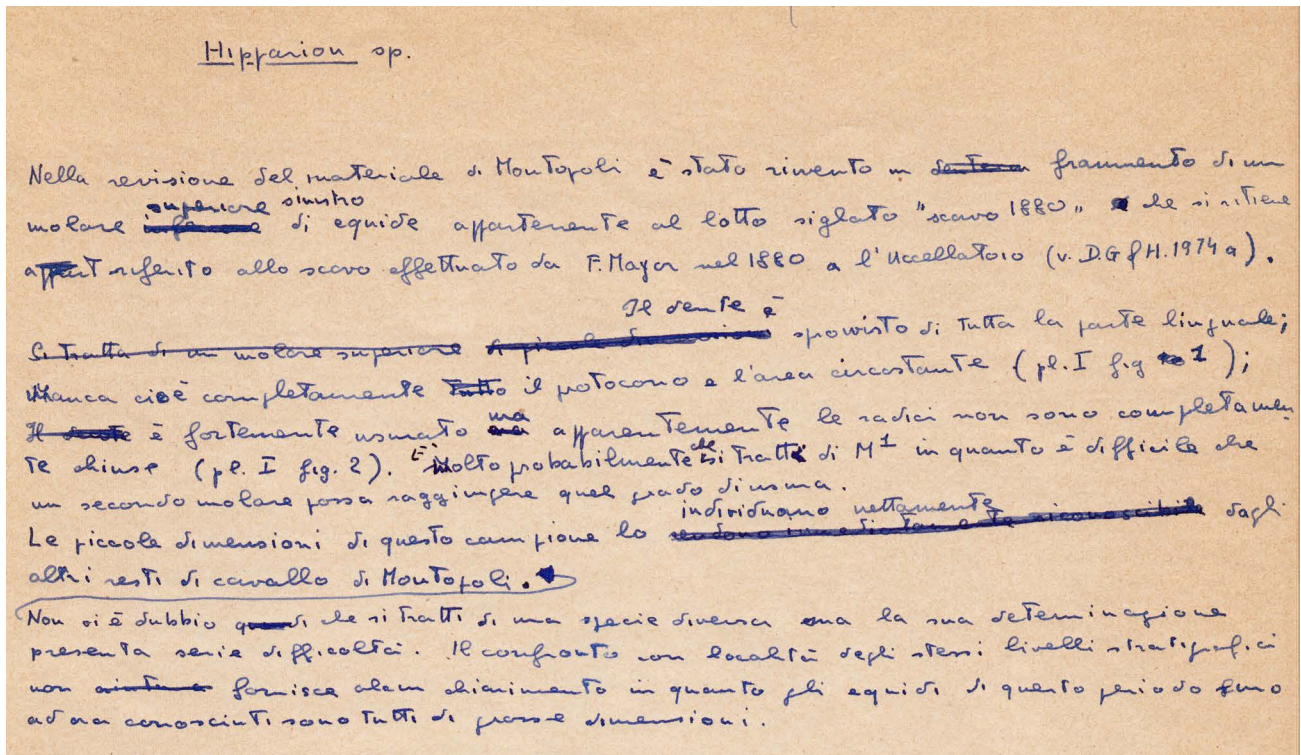 Hipparion sp.
Nella revisione del materiale di Montopoli è stato rinvento un frammento di un
superiore sinistro
molare inferiore di equide appartenente al lotto siglato "scavo 1880" che si ritiene
appart riferito allo scavo effettuato da F. Mayor nel 1880 a l'Uccellatoio (v. D.G & H. 1974 a).
Il dente è
Si tratta di un molare superiore di piccole dimensioni sprovvisto di tutta la parte linguale;
Manca cioè completamente tutto il protocono e l'area circostante (pl. I fig 1);
ma
Il dente è fortemente usurato ma apparentemente le radici non sono completamen
te chiuse (pl. I fig. 2). È molto probabilmente che si tratti di M1 in quanto è difficile che
un secondo molare possa raggiungere quel grado di usura.
individuano nettamente
Le piccole dimensioni di questo campione lo rendono immediatamente riconoscibile dagli
altri resti di cavallo di Montopoli.
Non vi è dubbio quindi che si tratti di una specie diversa ma la sua determinazione
presenta serie difficoltà. Il confronto con località degli stessi livelli stratigrafici
non fornisce alcun chiarimento in quanto gli equidi di questo periodo fino
ad ora conosciuti sono tutti di grosse dimensioni.